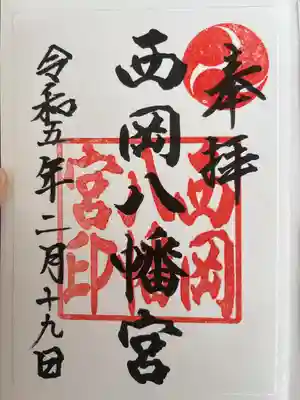 奉拝
西岡八幡宮
西岡
八幡
宮印
令和五年二月十九日